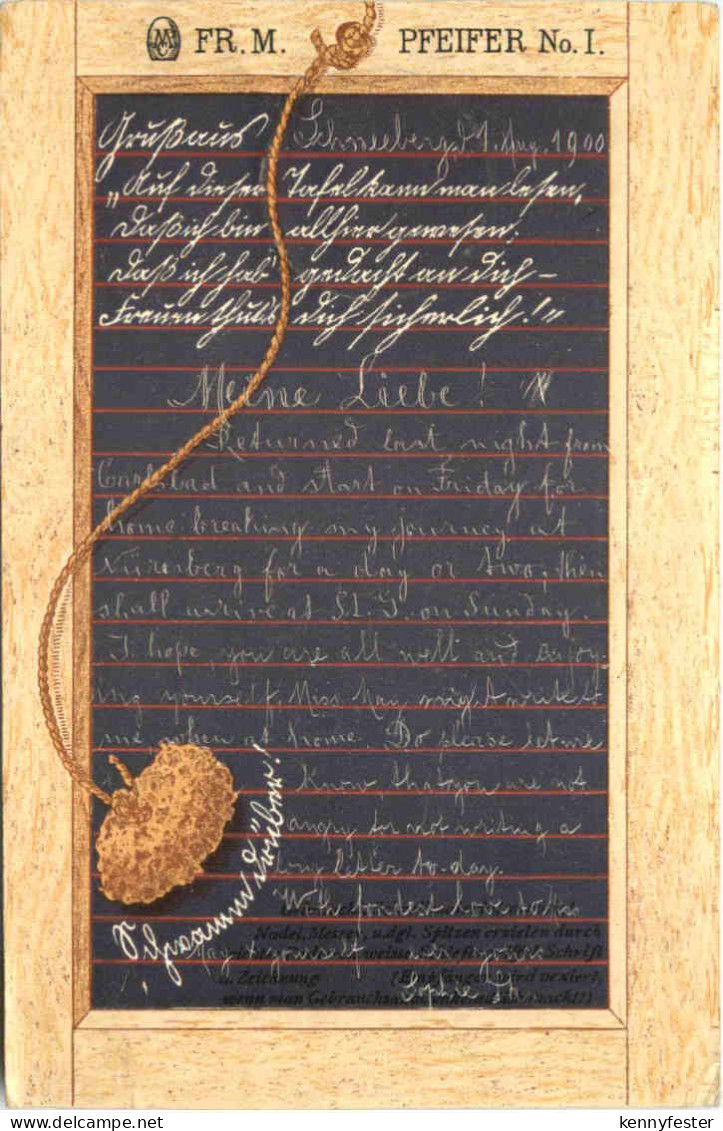 FR. M. PFEIFER No. I.
Gruß aus Schneeberg, d. 1. Aug. 1900
„Auf dieser Tafel kann man lesen,
Daß ich bin allhier gewesen,
Daß ich hab' gedacht an dich –
Freuen thut's dich sicherlich!"
Meine Liebe!
Returned last night from
Carlsbad and start on Friday for
home breaking my journey at
Nüremberg for a day or two, then
shall arrive at St. J. on Sunday.
I hope you are all well and enjoy-
ing yourself. Miss May might write to
me, when at home. Do please let me
know, that you are not
angry for not writing a
long letter to-day.
With fondest love to
May & yourself
Sophie
Schwamm drüber!
Nadel, Messer, u. dgl. Spitzen erzielen durch
Schrift
u. Zeichnung (Empfänger wird vexiert,
wenn man
kennyfester